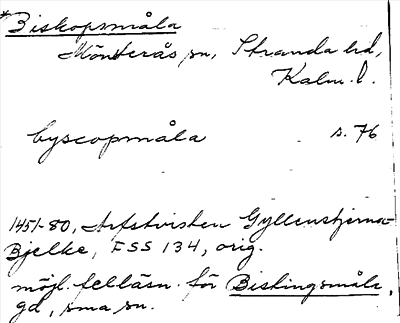 *Biskopsmåla
Mönsterås sn, Stranda hd,
Kalm. l.
byscopmåla s. 76
1451-80, Arfstvisten Gyllenstjerna-
Bjelke, FSS 134, orig.
möjl. felläsn. för Biskingsmåla,
gd, sma sn.